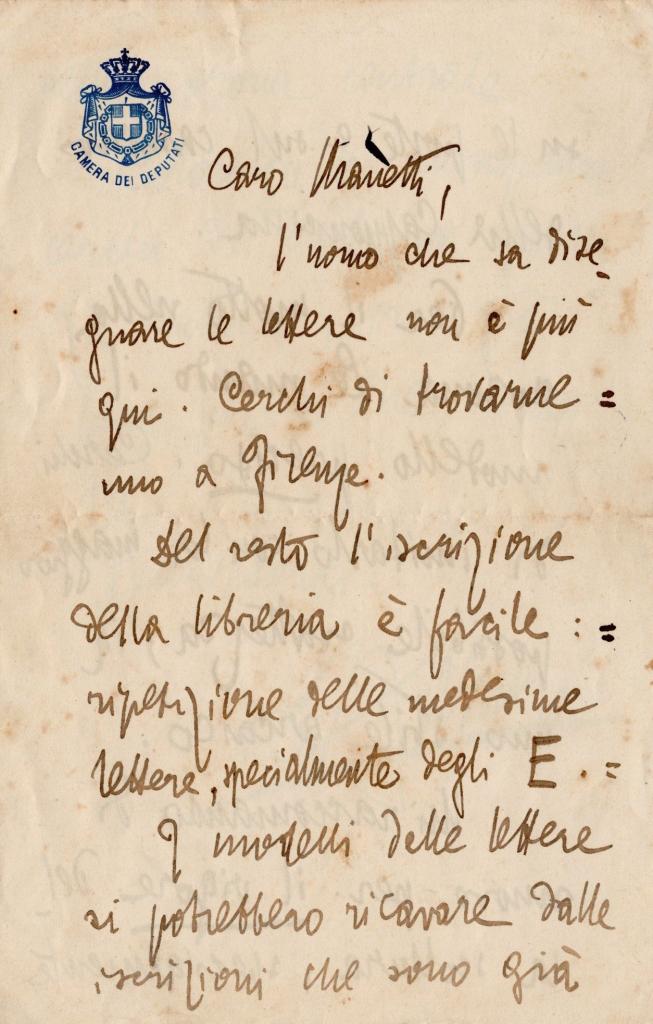 CAMERA DEI DEPUTATI
Caro Marietti,
l'uomo che sa dise-
gnare le lettere non è più
qui. Cerchi di trovarne =
uno a Firenze.
Del resto l'iscrizione
della libreria è facile : =
ripetizione delle medesime
lettere, specialmente degli E. =
I modelli delle lettere
si potrebbero ricavare dalle
iscrizioni che sono già